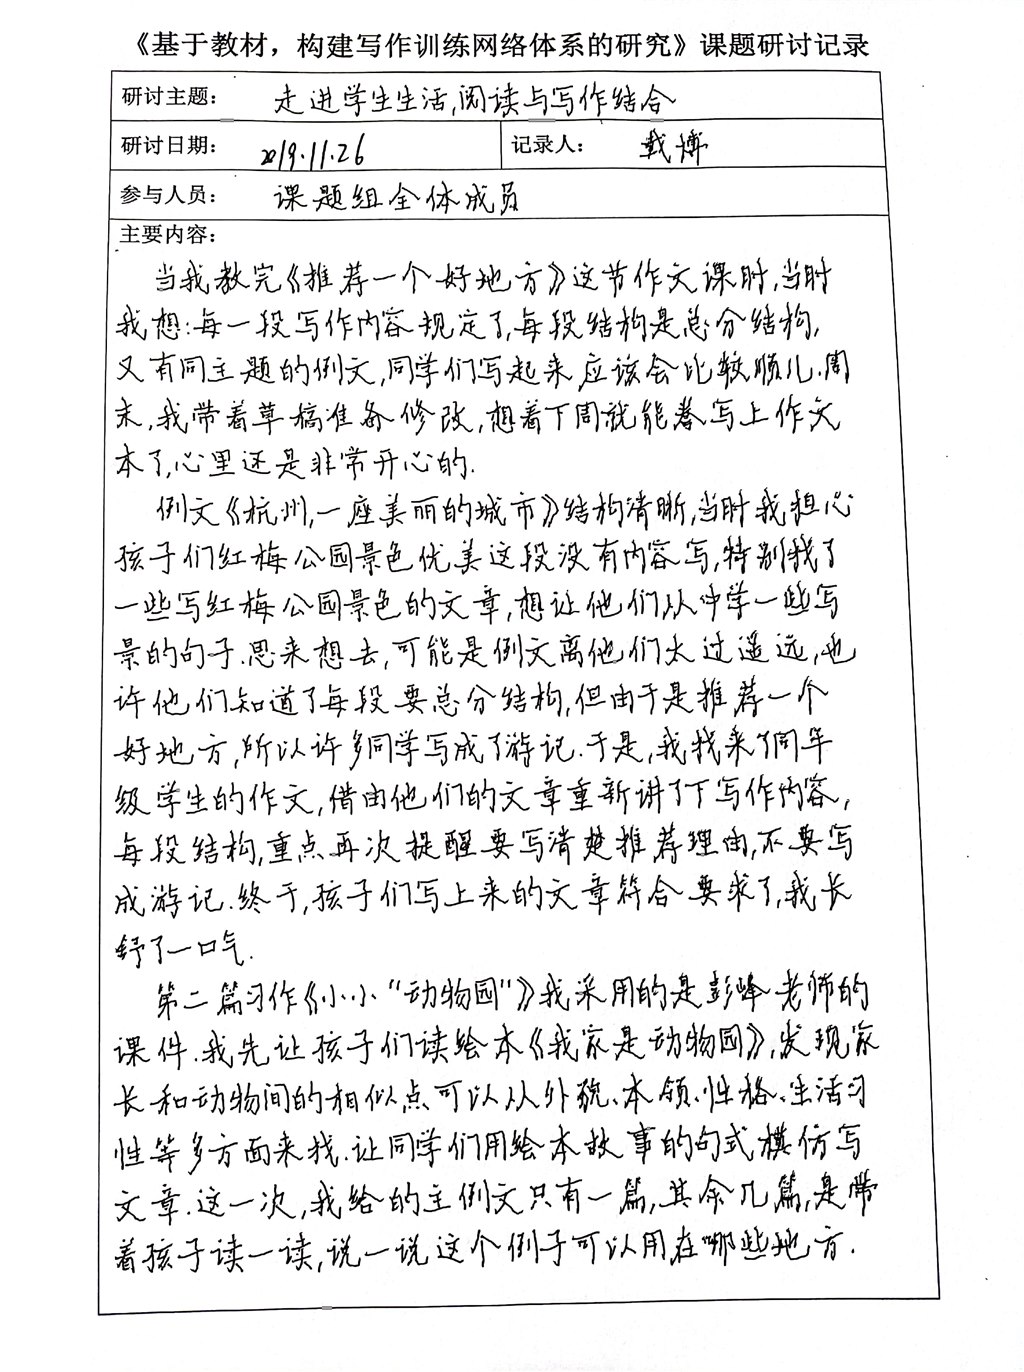 《基于教材，构建写作训练网络体系的研究》课题研讨记录
研讨主题： 走进学生生活,阅读与写作结合
研讨日期： 2019.11.26 记录人： 戴博
参与人员： 课题组全体成员
主要内容：
当我教完《推荐一个好地方》这节作文课时,当时
我想:每一段写作内容规定了,每段结构是总分结构,
又有同主题的例文,同学们写起来应该会比较顺儿.周
末,我带着草稿准备修改,想着下周就能誊写上作文
本了,心里还是非常开心的.
例文《杭州,一座美丽的城市》结构清晰,当时我担心
孩子们红梅公园景色优美这段没有内容写,特别找了
一些写红梅公园景色的文章,想让他们从中学一些写
景的句子.思来想去,可能是例文离他们太过遥远,也
许他们知道了每段要总分结构,但由于是推荐一个
好地方,所以许多同学写成了游记.于是,我找来了同年
级学生的作文,借由他们的文章重新讲了下写作内容,
每段结构,重点再次提醒要写清楚推荐理由,不要写
成游记.终于,孩子们写上来的文章符合要求了,我长
舒了一口气.
第二篇习作《小小“动物园”》我采用的是彭峰老师的
课件.我先让孩子们读绘本《我家是动物园》,发现家
长和动物间的相似点可以从外貌、本领、性格、生活习
性等多方面来找.让同学们用绘本故事的句式模仿写
文章.这一次,我给的主例文只有一篇,其余几篇,是带
着孩子读一读,说一说这个例子可以用在哪些地方.